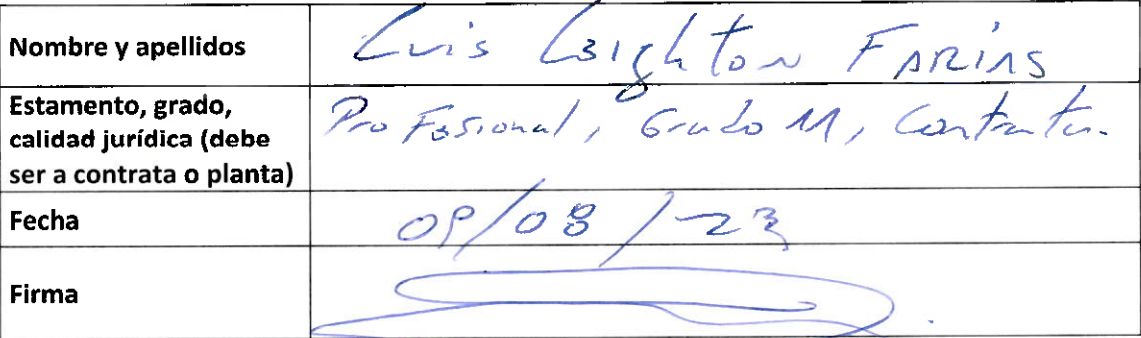 Nombre y apellidos
Luis Leighton FARIAS
Estamento, grado,
calidad jurídica (debe
ser a contrata o planta)
Profesional, Grado 11, Contrata.
Fecha
09/08/23
Firma